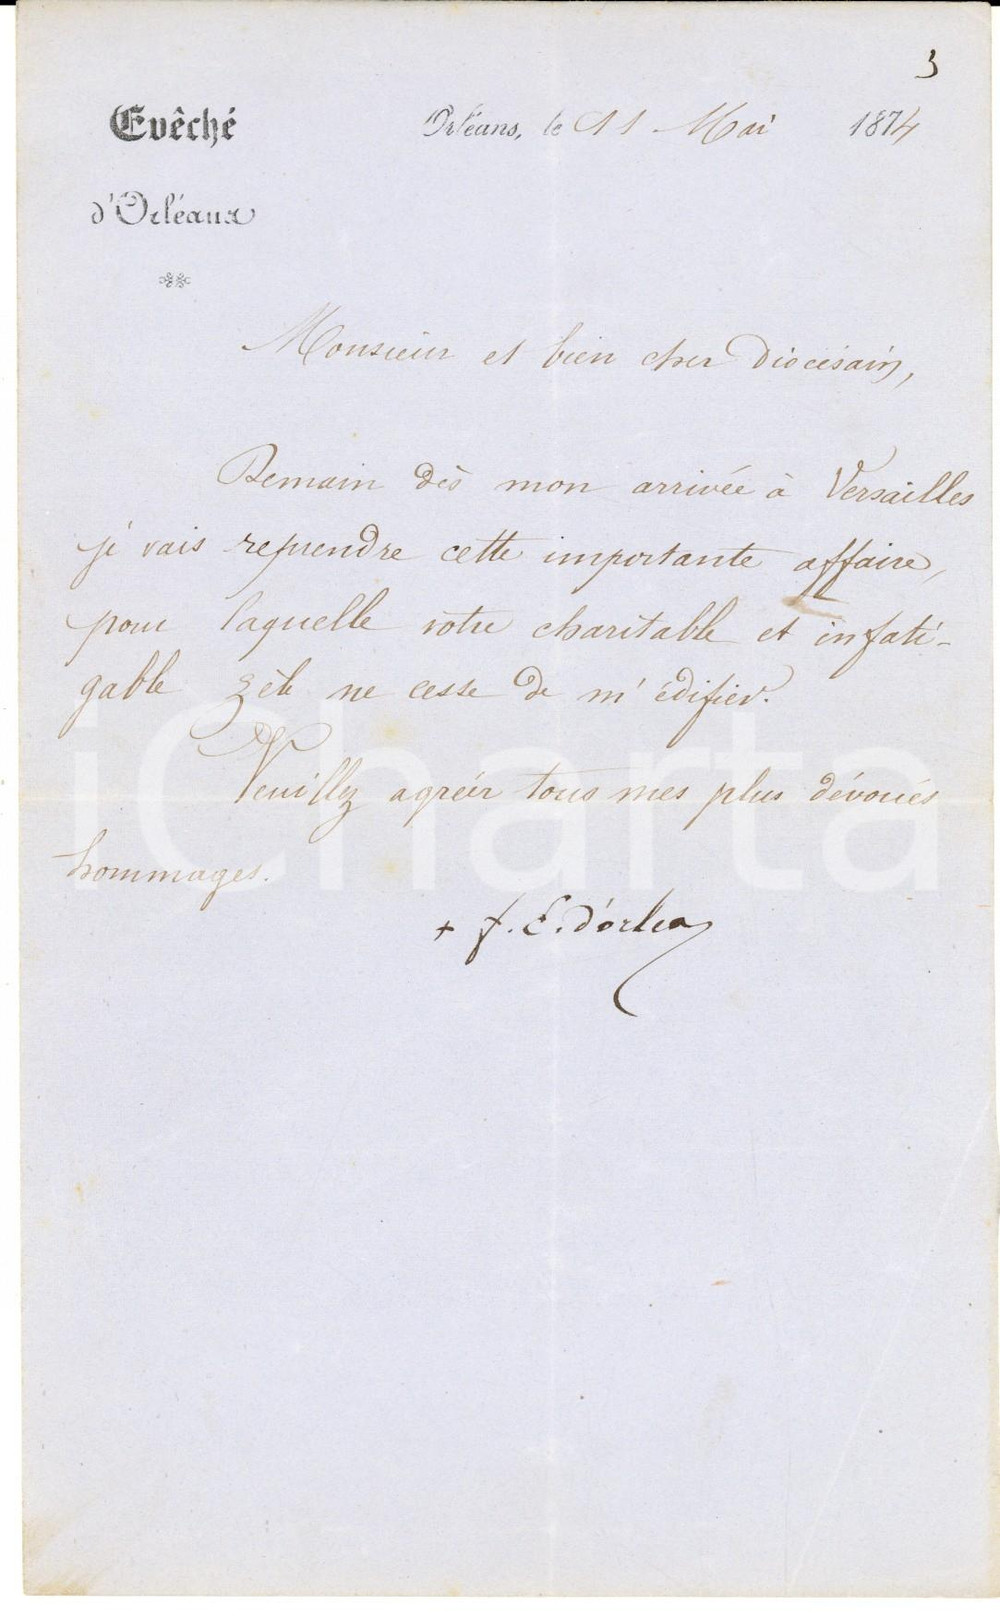 3
Evêché
d'Orléans
Orléans, le 11 Mai 1874
Monsieur et bien cher Diocésain,
Demain dès mon arrivée à Versailles
je vais reprendre cette importante affaire,
pour laquelle votre charitable et infati-
gable zèle ne cesse de m'édifier.
Veuillez agréer tous mes plus dévoués
hommages.
+ f. E. d'orlea
iCharta